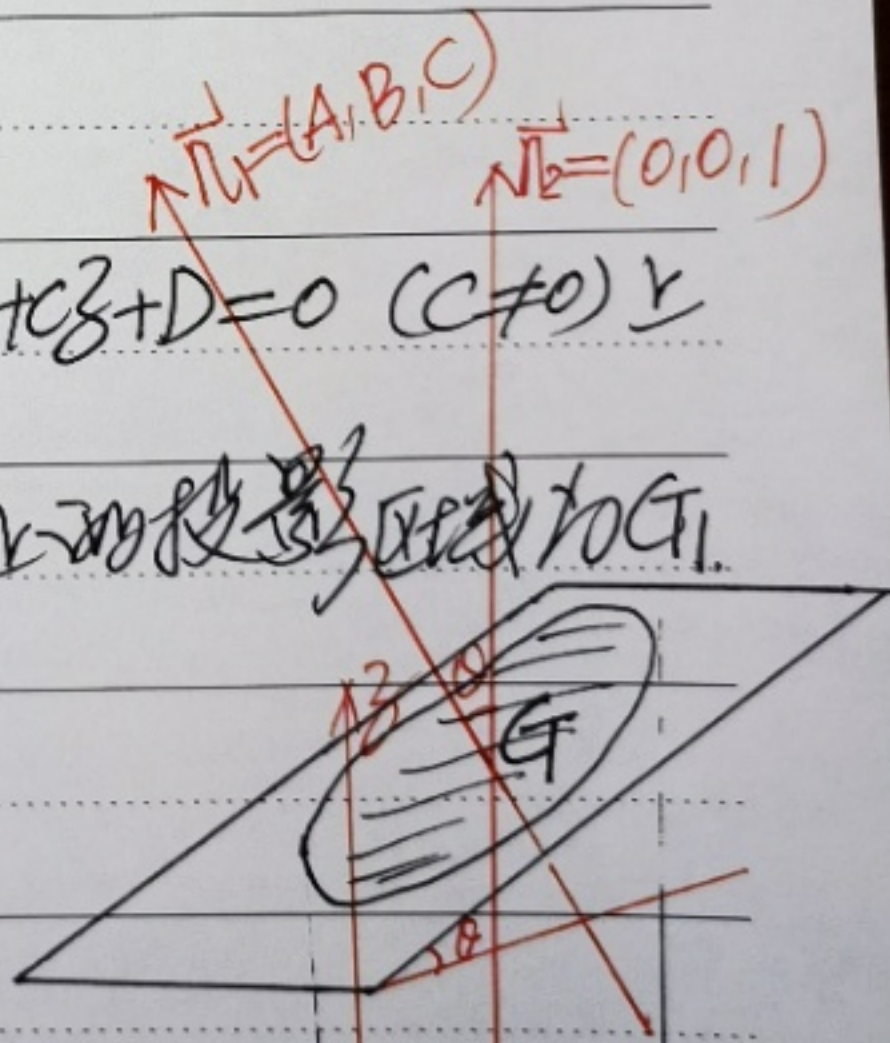 n⃗₁=(A,B,C)
n⃗₂=(0,0,1)
+Cz+D=0 (C≠0)上
上的投影区域为G₁.
z
θ
G
θ